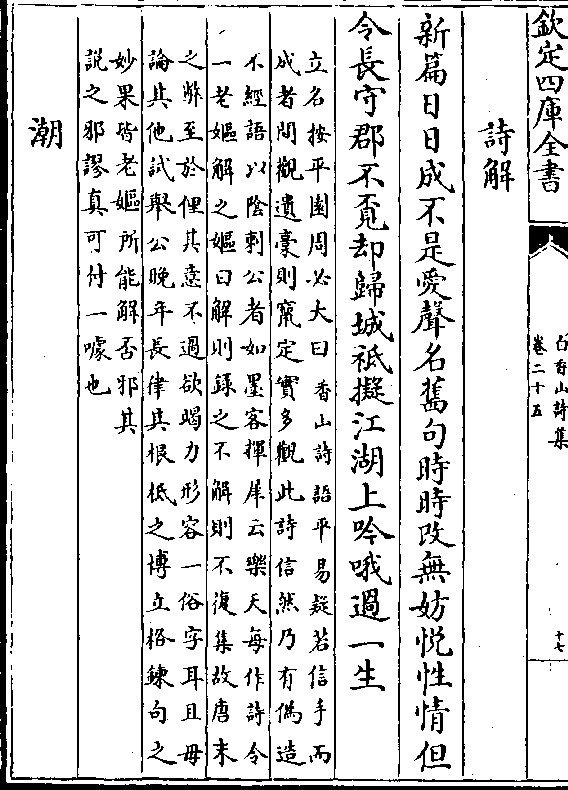 欽定四庫全書
白香山詩集
卷二十五
十七
詩解
新篇日日成不是愛聲名舊句時時改無妨悦性情但
令長守郡不覔却歸城祇擬江湖上吟哦過一生
立名按平園周必大曰香山詩語平易疑若信手而
成者間觀遺藁則竄定實多觀此詩信然乃有僞造
不經語以陰刺公者如墨客揮犀云樂天每作詩令
一老嫗解之嫗曰解則録之不解則不復集故唐末
之弊至於俚其意不過欲竭力形容一俗字耳且毋
論其他試舉公晚年長律其根柢之博立格鍊句之
妙果皆老嫗所能解否邪其
說之邪謬真可付一噱也
潮